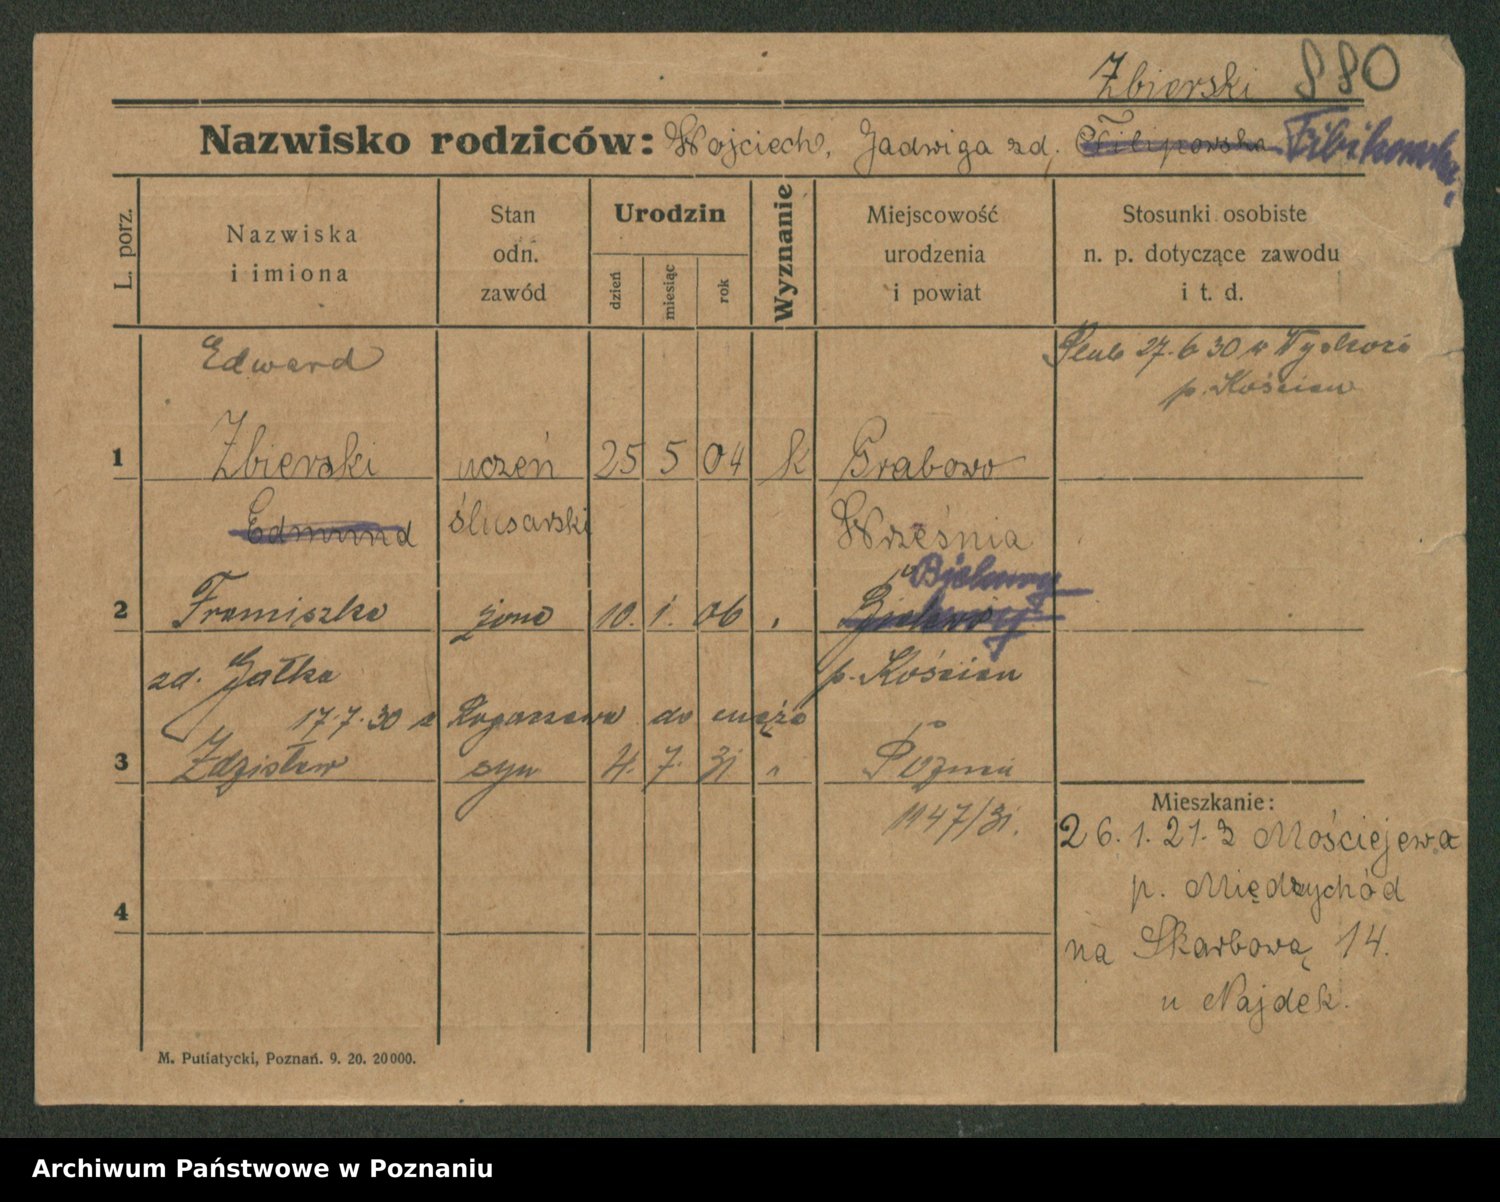 Zbierski 880
Nazwisko rodziców: Wojciech, Jadwiga zd. Filipowska
L. porz.
Nazwiska
i imiona
Stan
odn.
zawód
Urodzin
dzień
miesiąc
rok
Wyznanie
Miejscowość
urodzenia
i powiat
Stosunki osobiste
n. p. dotyczące zawodu
i t. d.
Edward
Ślub 27.6 30 w
p. Kościan
1 Zbierski uczeń 25 5 04 k Grabowo
Edmund ślusarski Września
2 Franciszka żona 10. 1. 06
zd. Gałka p. Kościan
17.7.30 z do męża
3 Zdzisław syn 4. 7. 31 Poznań
1147/31.
Mieszkanie:
26.1.21. z Mościejewa
p. Międzychód
4
na Skarbową 14.
u Najdek.
M. Putiatycki, Poznań. 9. 20. 20000.
Archiwum Państwowe w Poznaniu